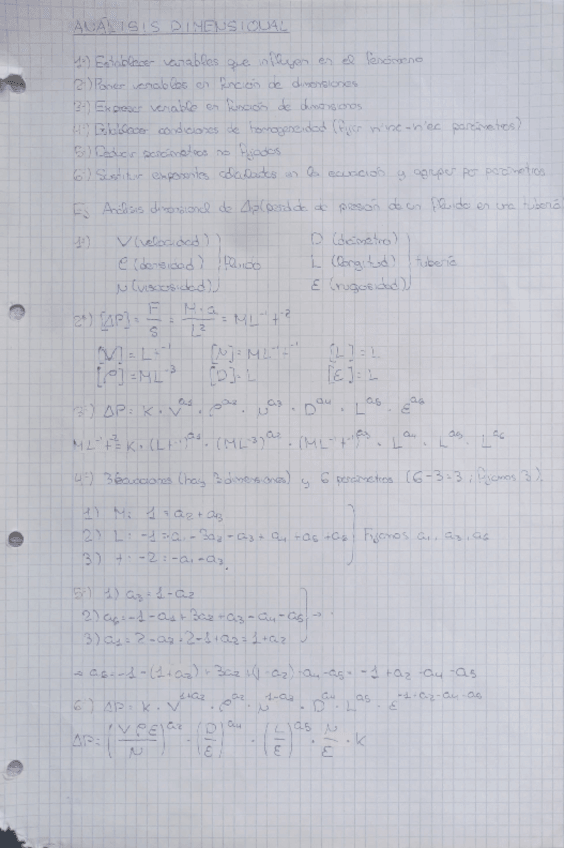 ANÁLISIS DIMENSIONAL
1º) Establecer variables que influyen en el fenómeno
2º) Poner variables en función de dimensiones
3º) Expresar variable en función de dimensiones
4º) Establecer condiciones de homogeneidad (fijar nºinc-nºec parámetros)
5º) Deducir parámetros no fijados
6º) Sustituir exponentes calculados en la ecuación y agrupar por parámetros
Ej Análisis dimensional de Δp(pérdida de presión de un fluido en una tubería)
1º) V (velocidad) D (diámetro)
ρ (densidad) fluido L (longitud) tubería
μ (viscosidad) ε (rugosidad)
2º) [ΔP] = F/S = M·a/L² = ML⁻¹t⁻²
[V] = Lt⁻¹ [μ] = ML⁻¹t⁻¹ [L] = L
[ρ] = ML⁻³ [D] = L [ε] = L
3º) ΔP = K · V^a₁ · ρ^a₂ · μ^a₃ · D^a₄ · L^a₅ · ε^a₆
ML⁻¹t⁻² = K · (Lt⁻¹)^a₁ · (ML⁻³)^a₂ · (ML⁻¹t⁻¹)^a₃ · L^a₄ · L^a₅ · L^a₆
4º) 3 ecuaciones (hay 3 dimensiones) y 6 parámetros (6-3=3, fijamos 3).
1) M: 1 = a₂ + a₃
2) L: -1 = a₁ - 3a₂ - a₃ + a₄ + a₅ + a₆ Fijamos a₁, a₃, a₆
3) t: -2 = -a₁ - a₃
5º) 1) a₃ = 1 - a₂
2) a₆ = -1 - a₁ + 3a₂ + a₃ - a₄ - a₅ →
3) a₁ = 2 - a₃ = 2 - 1 + a₂ = 1 + a₂
→ a₆ = -1 - (1 + a₂) + 3a₂ + (1 - a₂) - a₄ - a₅ = -1 + a₂ - a₄ - a₅
6º) ΔP = K · V^1+a₂ · ρ^a₂ · μ^1-a₂ · D^a₄ · L^a₅ · ε^-1+a₂-a₄-a₅
ΔP = (Vρε/μ)^a₂ · (D/ε)^a₄ · (L/ε)^a₅ · μ/ε · K